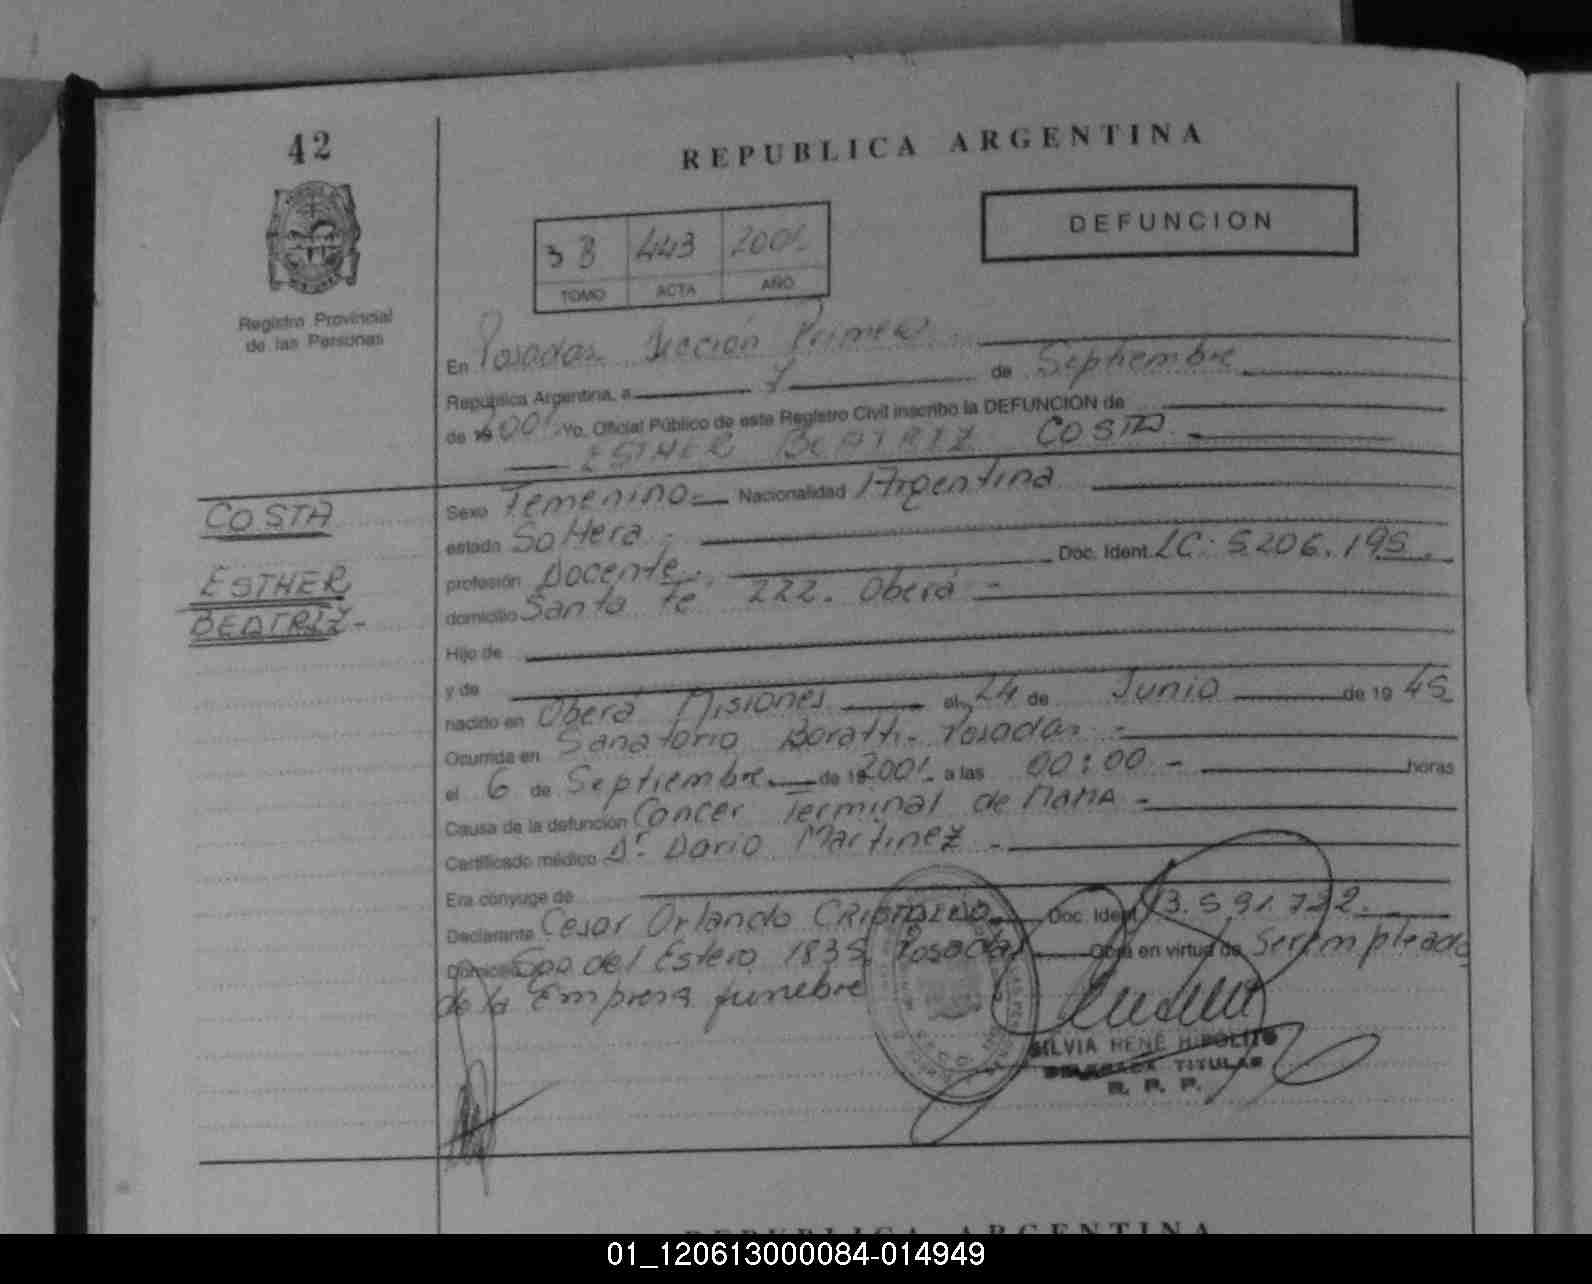 42
REPUBLICA ARGENTINA
DEFUNCION
3 B 443 2001
TOMO ACTA AÑO
Registro Provincial
de las Personas
En Posadas Sección Primera
República Argentina, a 7 de Septiembre
de 2001 Yo, Oficial Público de este Registro Civil inscribo la DEFUNCION de
ESTHER BEATRIZ COSTA
COSTA
ESTHER
BEATRIZ-
Sexo Femenino- Nacionalidad Argentina
estado Soltera -
profesión Docente. Doc. Ident. LC. 5.206.195.
domicilio Santa Fe 222. Oberá -
Hijo de
y de
nacido en Oberá Misiones el 24 de Junio de 19 45
Ocurrida en Sanatorio Boratti- Posadas -
el 6 de Septiembre de 2001- a las 00:00 - horas
Causa de la defunción Cancer Terminal de MAMA -
Certificado médico Dr. Dario Martinez -
Era cónyuge de
Declarante Cesar Orlando Doc. Ident. 13.591.722.
Domicilio Sgo. del Estero 1835. Posadas Obra en virtud de Ser empleado
de la Empresa funebre
SILVIA RENÉ HIPOLITO
DELEGADA TITULAR
R. P. P.
REPUBLICA ARGENTINA
01_120613000084-014949